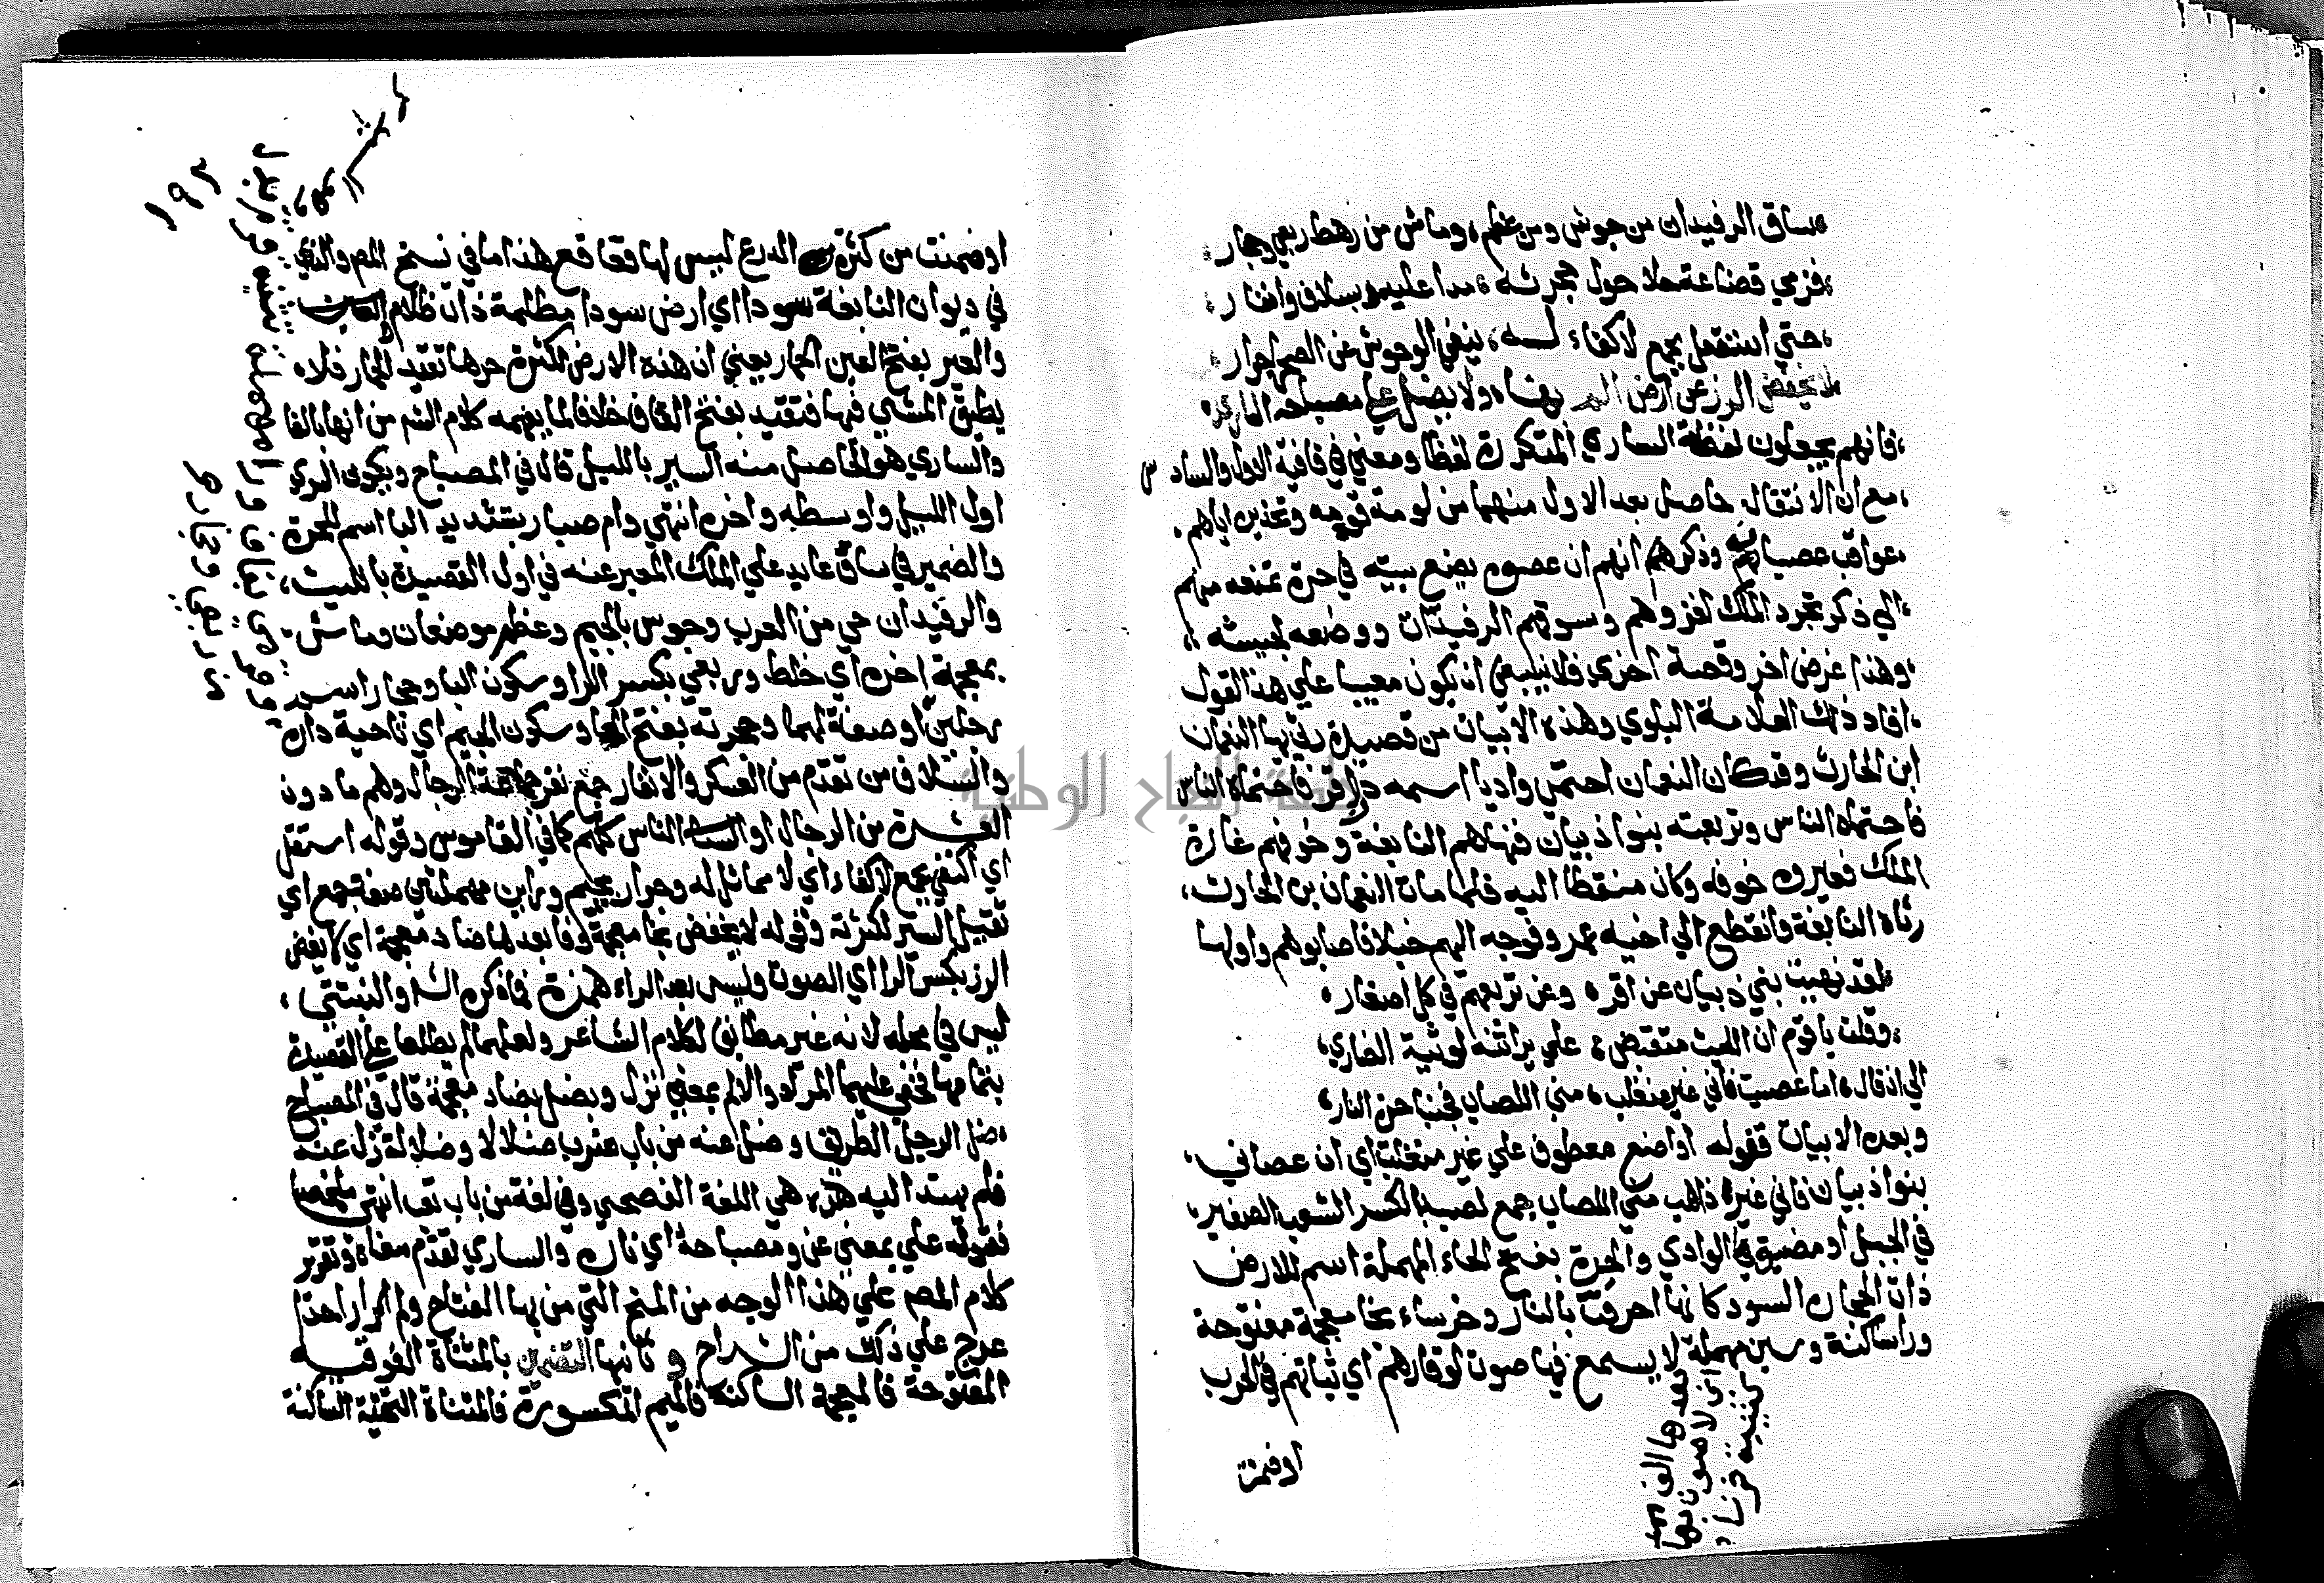 ساق الرفيدان من جوش ومن عظم، وماش من رهط ربعي وحجار
فرمي قضاعة حلا حول حجرته، مدا عليه بسلاف وانفار
حتي استقل بجمع لا كفاء له، ينفي الوحوش عن الصحرا جرار
لا يخفض الرز عن ارض الم بها، ولا يضل علي مصباحه الساري
فانهم يجعلون لفظة الساري المتكررة لفظا ومعني في قافية الاول والسادس
مع ان الانتقال حاصل بعد الاول منهما من لومة قومه وتحذيره اياهم
عواقب عصيانه وذكر لهم انهم ان عصوه يضع بيته في حرة تمنعه منهم
الي ذكر تجرد الملك لغزوهم وسوقهم الرفيدان ووصفه لجيشه
وهذا غرض اخر وقصة اخري فلا ينبغي ان يكون معيبا علي هذا القول
افاد ذلك العلامة البلوي وهذه الابيات من قصيدة رثي بها النعمان
ابن الحارث وقد كان النعمان احتمي واديا اسمه ذو اقر فاحتماه الناس
فاحتماه الناس وتربعته بنوا ذبيان فنهاهم النابغة وخوفهم غارة
الملك فعيروه خوفه وكان منقطعا اليه فلما مات النعمان بن الحارث،
رثاه النابغة وانقطع الي اخيه عمرو فوجه اليهم خيلا فاصابوهم واولها
لقد نهيت بني ذبيان عن اقر، وعن تربعهم في كل اصفار
وقلت يا قوم ان الليث منقبض، علي براثنه لوثبة الضاري
الي ان قال، اما عصيت فاني غير منفلت، مني اللصاب فجنبا حرة النار
وبعده الابيات فقوله اواضع معطوف علي غير منفلت اي ان عصاني
بنوا ذبيان فاني غير ذاهب مني اللصاب جمع لصب بالكسر الشعب الصغير
في الجبل او مضيق في الوادي والحرة بفتح الحاء المهملة اسم للارض
ذات الحجارة السود كانها احرقت بالنار وخرساء بخا معجمة مفتوحة
ورا ساكنة وسين مهملة لا يسمع فيها صوت لوقارهم اي ثباتهم في الحرب
اوضمنت
اوضمنت من كثرة الدرع ليس لها قعاقع هذا ما في نسخ المص والذي
في ديوان النابغة سودا اي ارض سودا مظلمة ذات ظلام
والعير بفتح العين الحمار يعني ان هذه الارض لكثرة حرها تقيد الحمار فلا
يطيق المشي فيها فتقيد بفتح القاف خلافا لما يفهمه كلام الش من انها بالفا
والساري هو الحاصل منه السير بالليل قال في المصباح ويكون السري
اول الليل واوسطه واخره انتهي وام صبار بتشديد البا اسم للحرة
والضمير في ساق عايد علي الملك المعبر عنه في اول القصيدة بالليث،
والرفيدان حي من العرب وجوش بالجيم وعظم موضعان وماش
بمعجمة اخره اي خلط وربعي بكسر الرا وسكون البا وحجار اسم
رجلين او صفة لهما وحجرته بفتح الحا وسكون الجيم اي ناحية داره
والسلاف من تقدم من العسكر والانفار جمع نفر جماعة الرجال وهم ما دون
العشرة من الرجال او الناس كلهم كما في القاموس وقوله استقل
اي اكتفي بجمع لا كفاء اي لا مماثل له وجرار بجيم وراين مهملتين صفة جمع اي
ثقيل السير لكثرته وقوله لا يخفض بخا معجمة وفا بعدها ضاد معجمة اي لا يغض
الرز بكسر الرا اي الصوت وليس بعد الراء همزة فما ذكره الش والنبتتي،
ليس في محله لانه غير مطابق لكلام الشاعر ولعلهما لم يطلعا علي القصيدة
بتمامها فخفي عليهما المراد والالم بمعني نزل ويضل بضاد معجمة قال في المصباح
ضل الرجل الطريق وضل عنه من باب ضرب ضلالا وضلالة زل عنه
فلم يهتد اليه هذه هي اللغة الفصحي وفي لغة من باب تعب انتهي ملخصا
فقوله علي بمعني عن ومصباحه اي ناره والساري تقدم معناه وتقرير
كلام المص علي هذا الوجه من المنح التي من بها الفتاح ولم ار احدا
عرج علي ذلك من الشراح و ثانيها التضمين بالمثناة الفوقيه
المفتوحة فالمعجمة الساكنة فالميم المكسورة فالمثناة التحتية الساكنة
١٩٣